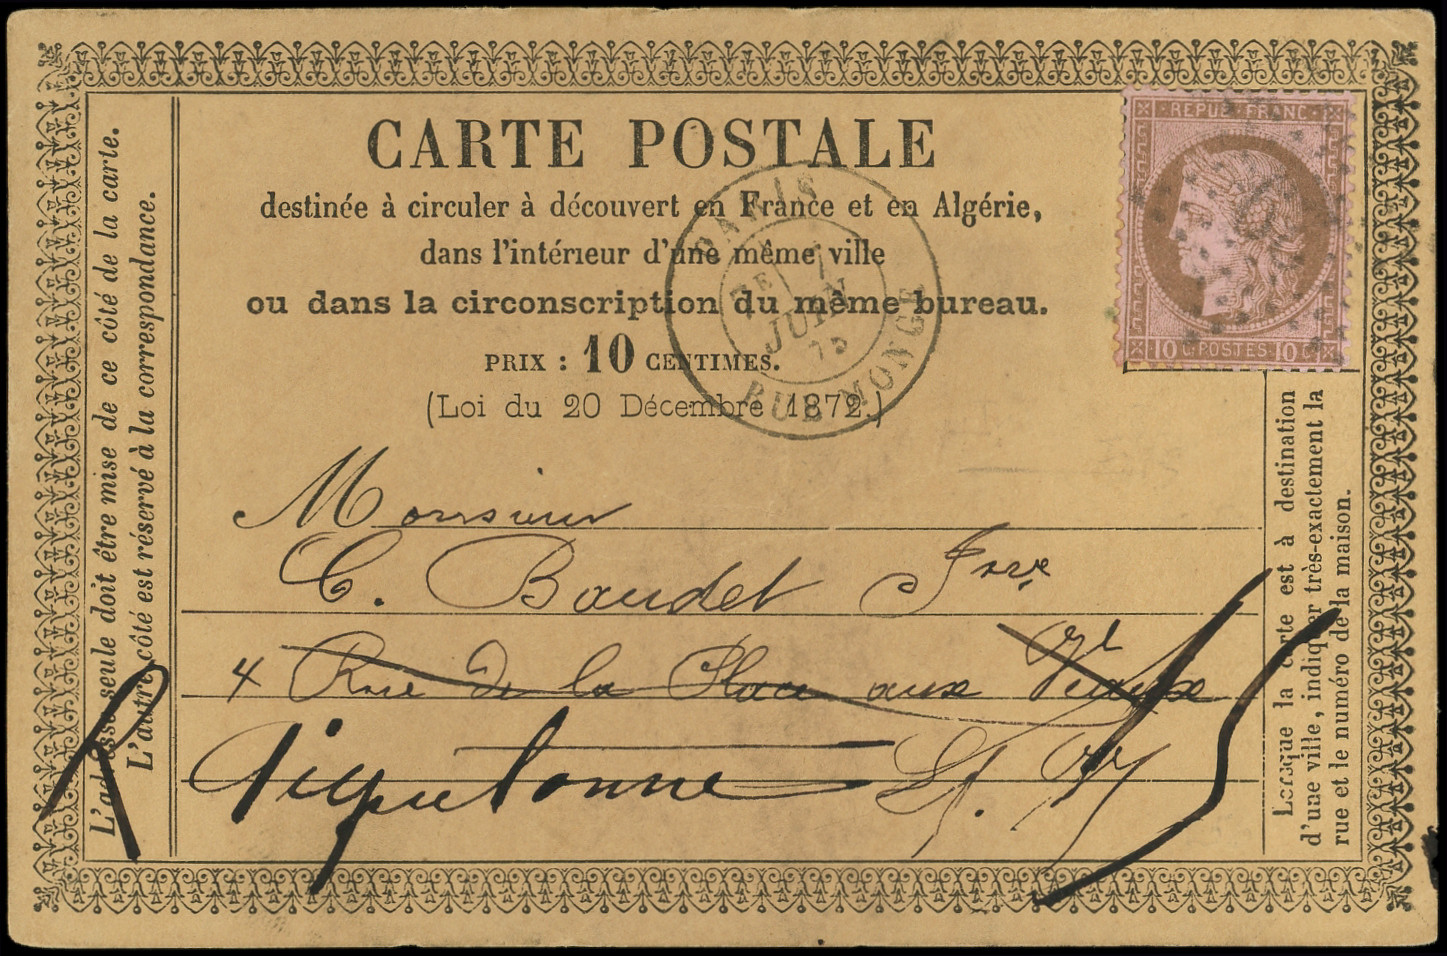 CARTE POSTALE
destinée à circuler à découvert en France et en Algérie,
dans l'intérieur d'une même ville
ou dans la circonscription du même bureau.
PRIX : 10 CENTIMES.
(Loi du 20 Décembre 1872.)
REPUB. FRANC.
10 C. POSTES 10 C.
PARIS
7E
1
JUIN
75
RUE MONGE
Monsieur
C. Baudet
4 Rue de la Place aux
R Tiquetonne 15
L'adresse seule doit être mise de ce côté de la carte.
L'autre côté est réservé à la correspondance.
Lorsque la carte est à destination
d'une ville, indiquer très-exactement la
rue et le numéro de la maison.